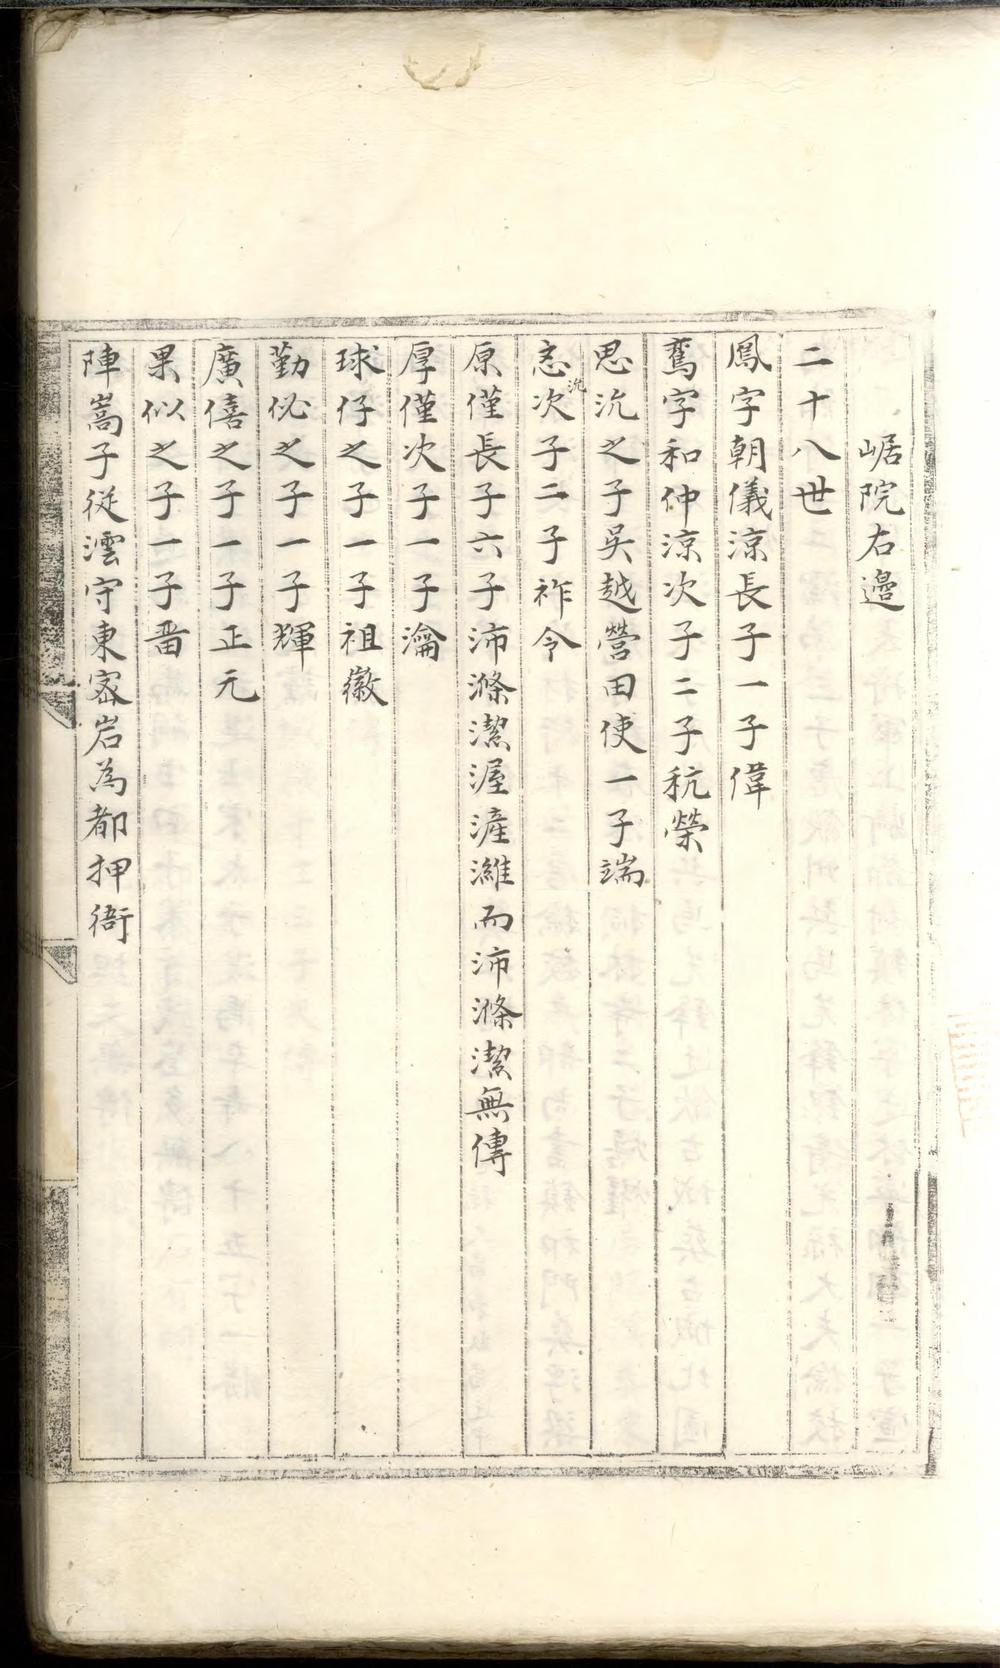 崌院右邉
二十八世
鳳字朝儀涼長子一子偉
鸞字和仲涼次子二子秔榮
思沇之子吳越營田使一子端
忞沇次子二子祚令
原僅長子六子沛滌潔渥滻濰而沛滌潔無傳
厚僅次子一子瀹
球仔之子一子祖徽
勤佖之子一子輝
廣僖之子一子正元
果似之子一子畨
陣嵩子從澐守東宻岩為都押衙